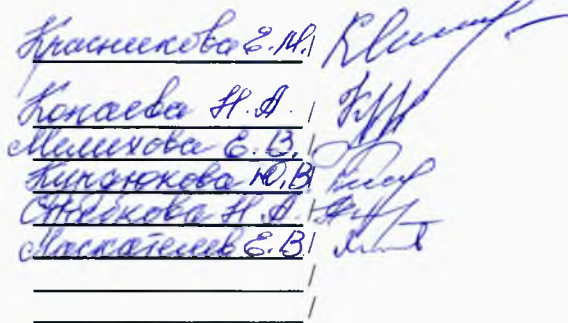 Красникова Е.М./
Копаева Н.А. /
Мелихова Е.В./
Кирдюкова Ю.В/
Стебкова Н.А./
Маскателев Е.В/
/
/